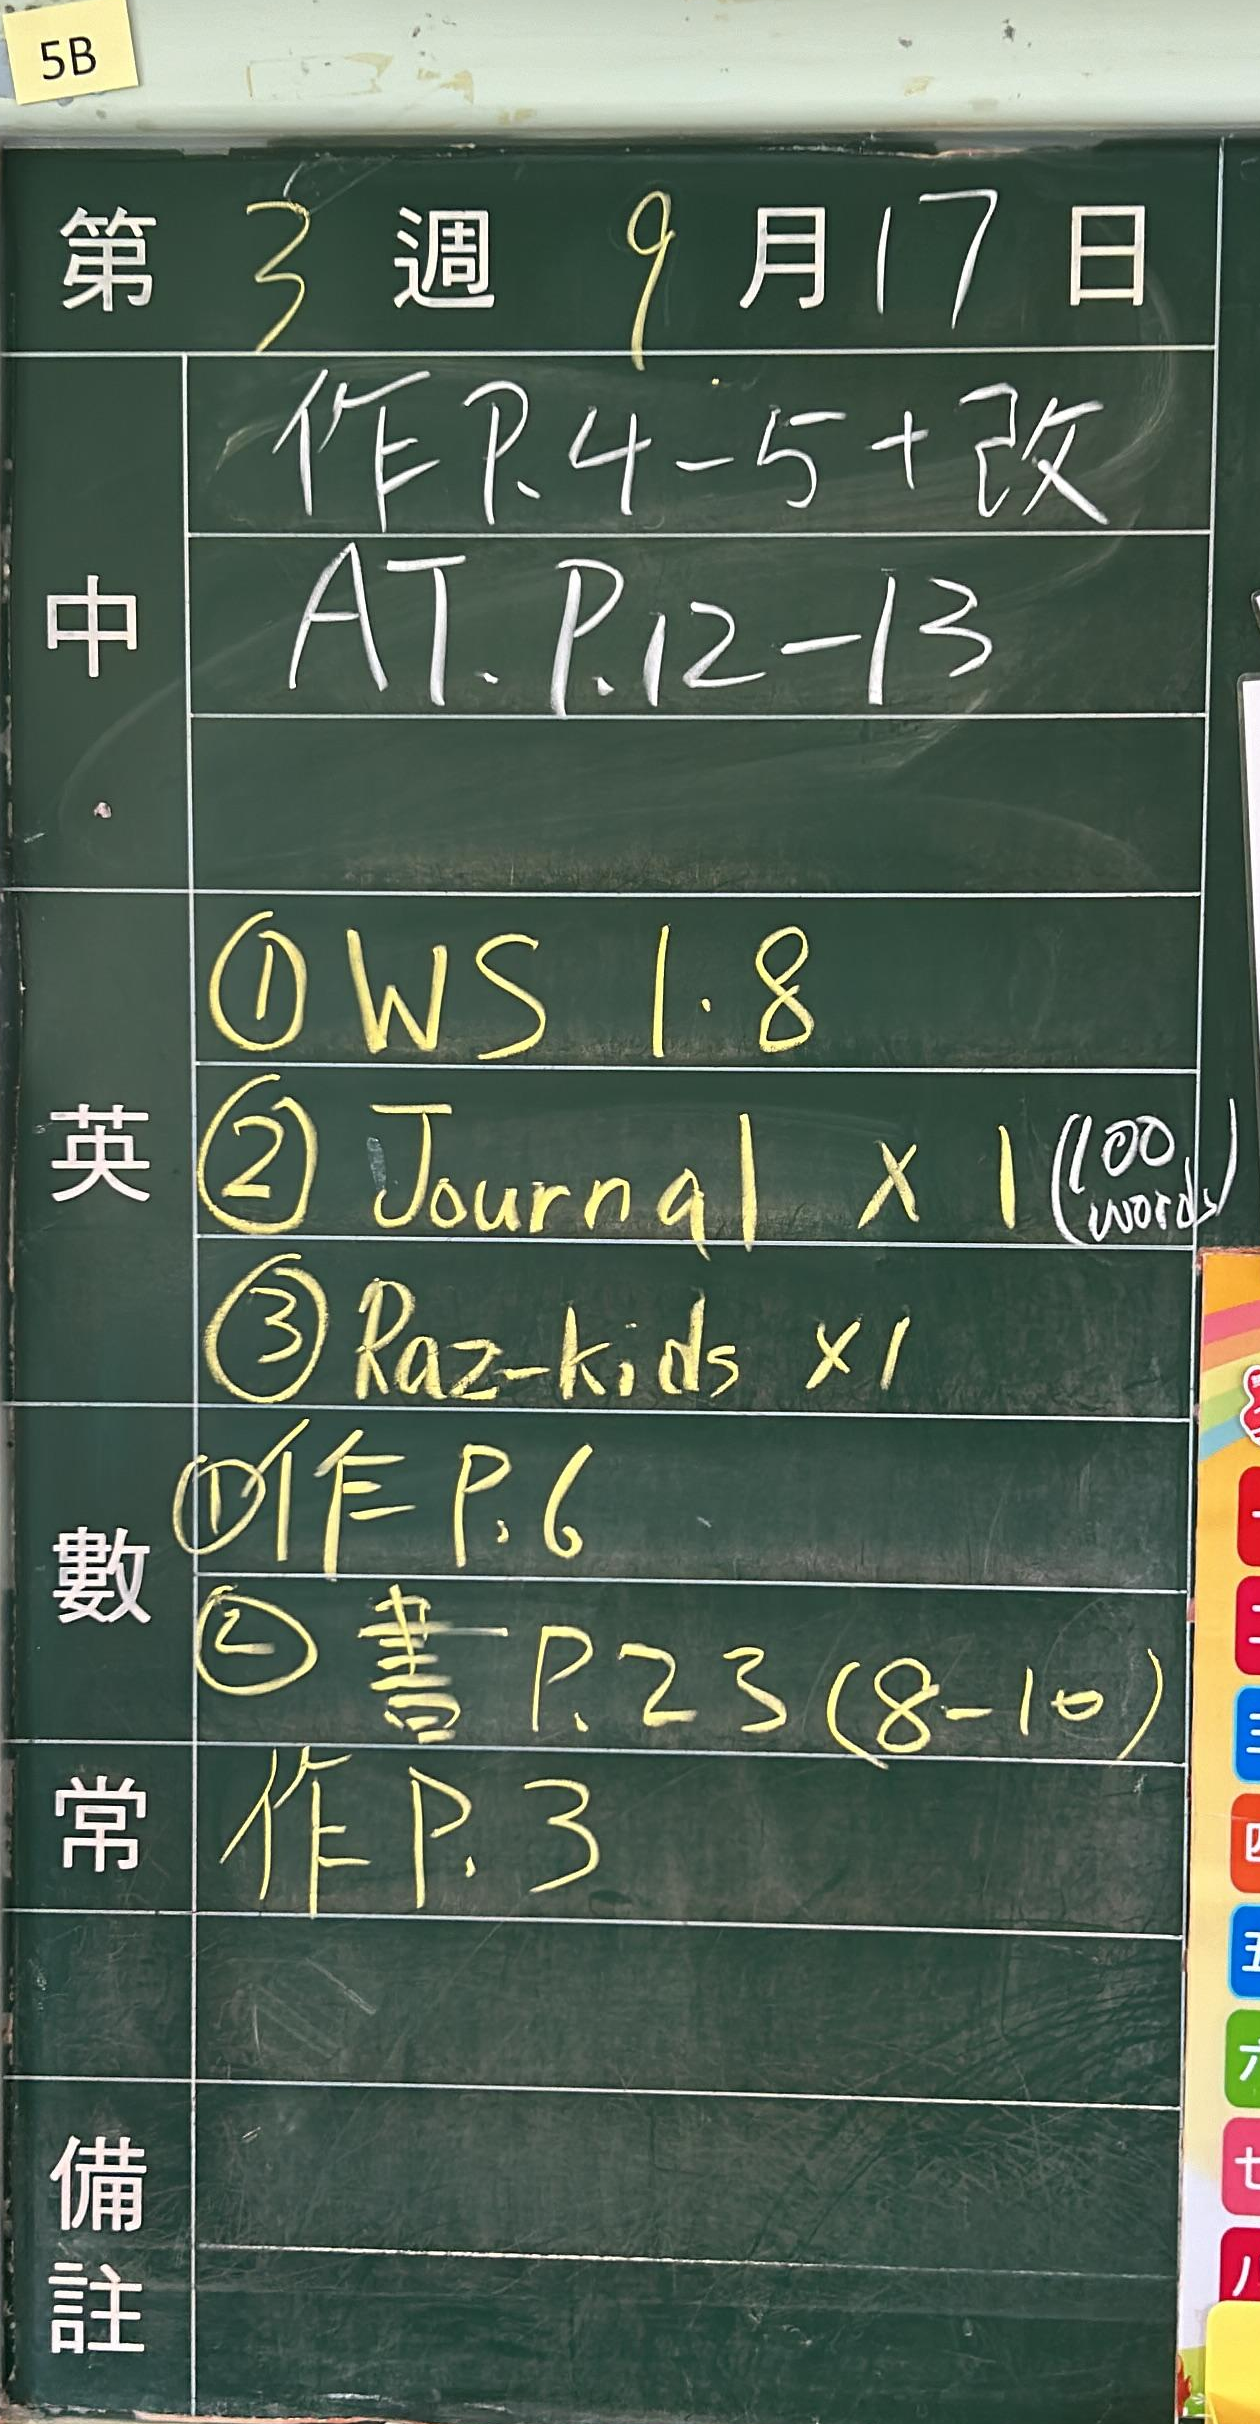 5B
第 3 週 9 月 17 日
中
作 P.4-5+改
AT. P.12-13
英
① WS 1.8
② Journal x 1 (100 words)
③ Raz-kids x1
數
① 作 P.6
② 書 P.23 (8-10)
常
作 P.3
備註